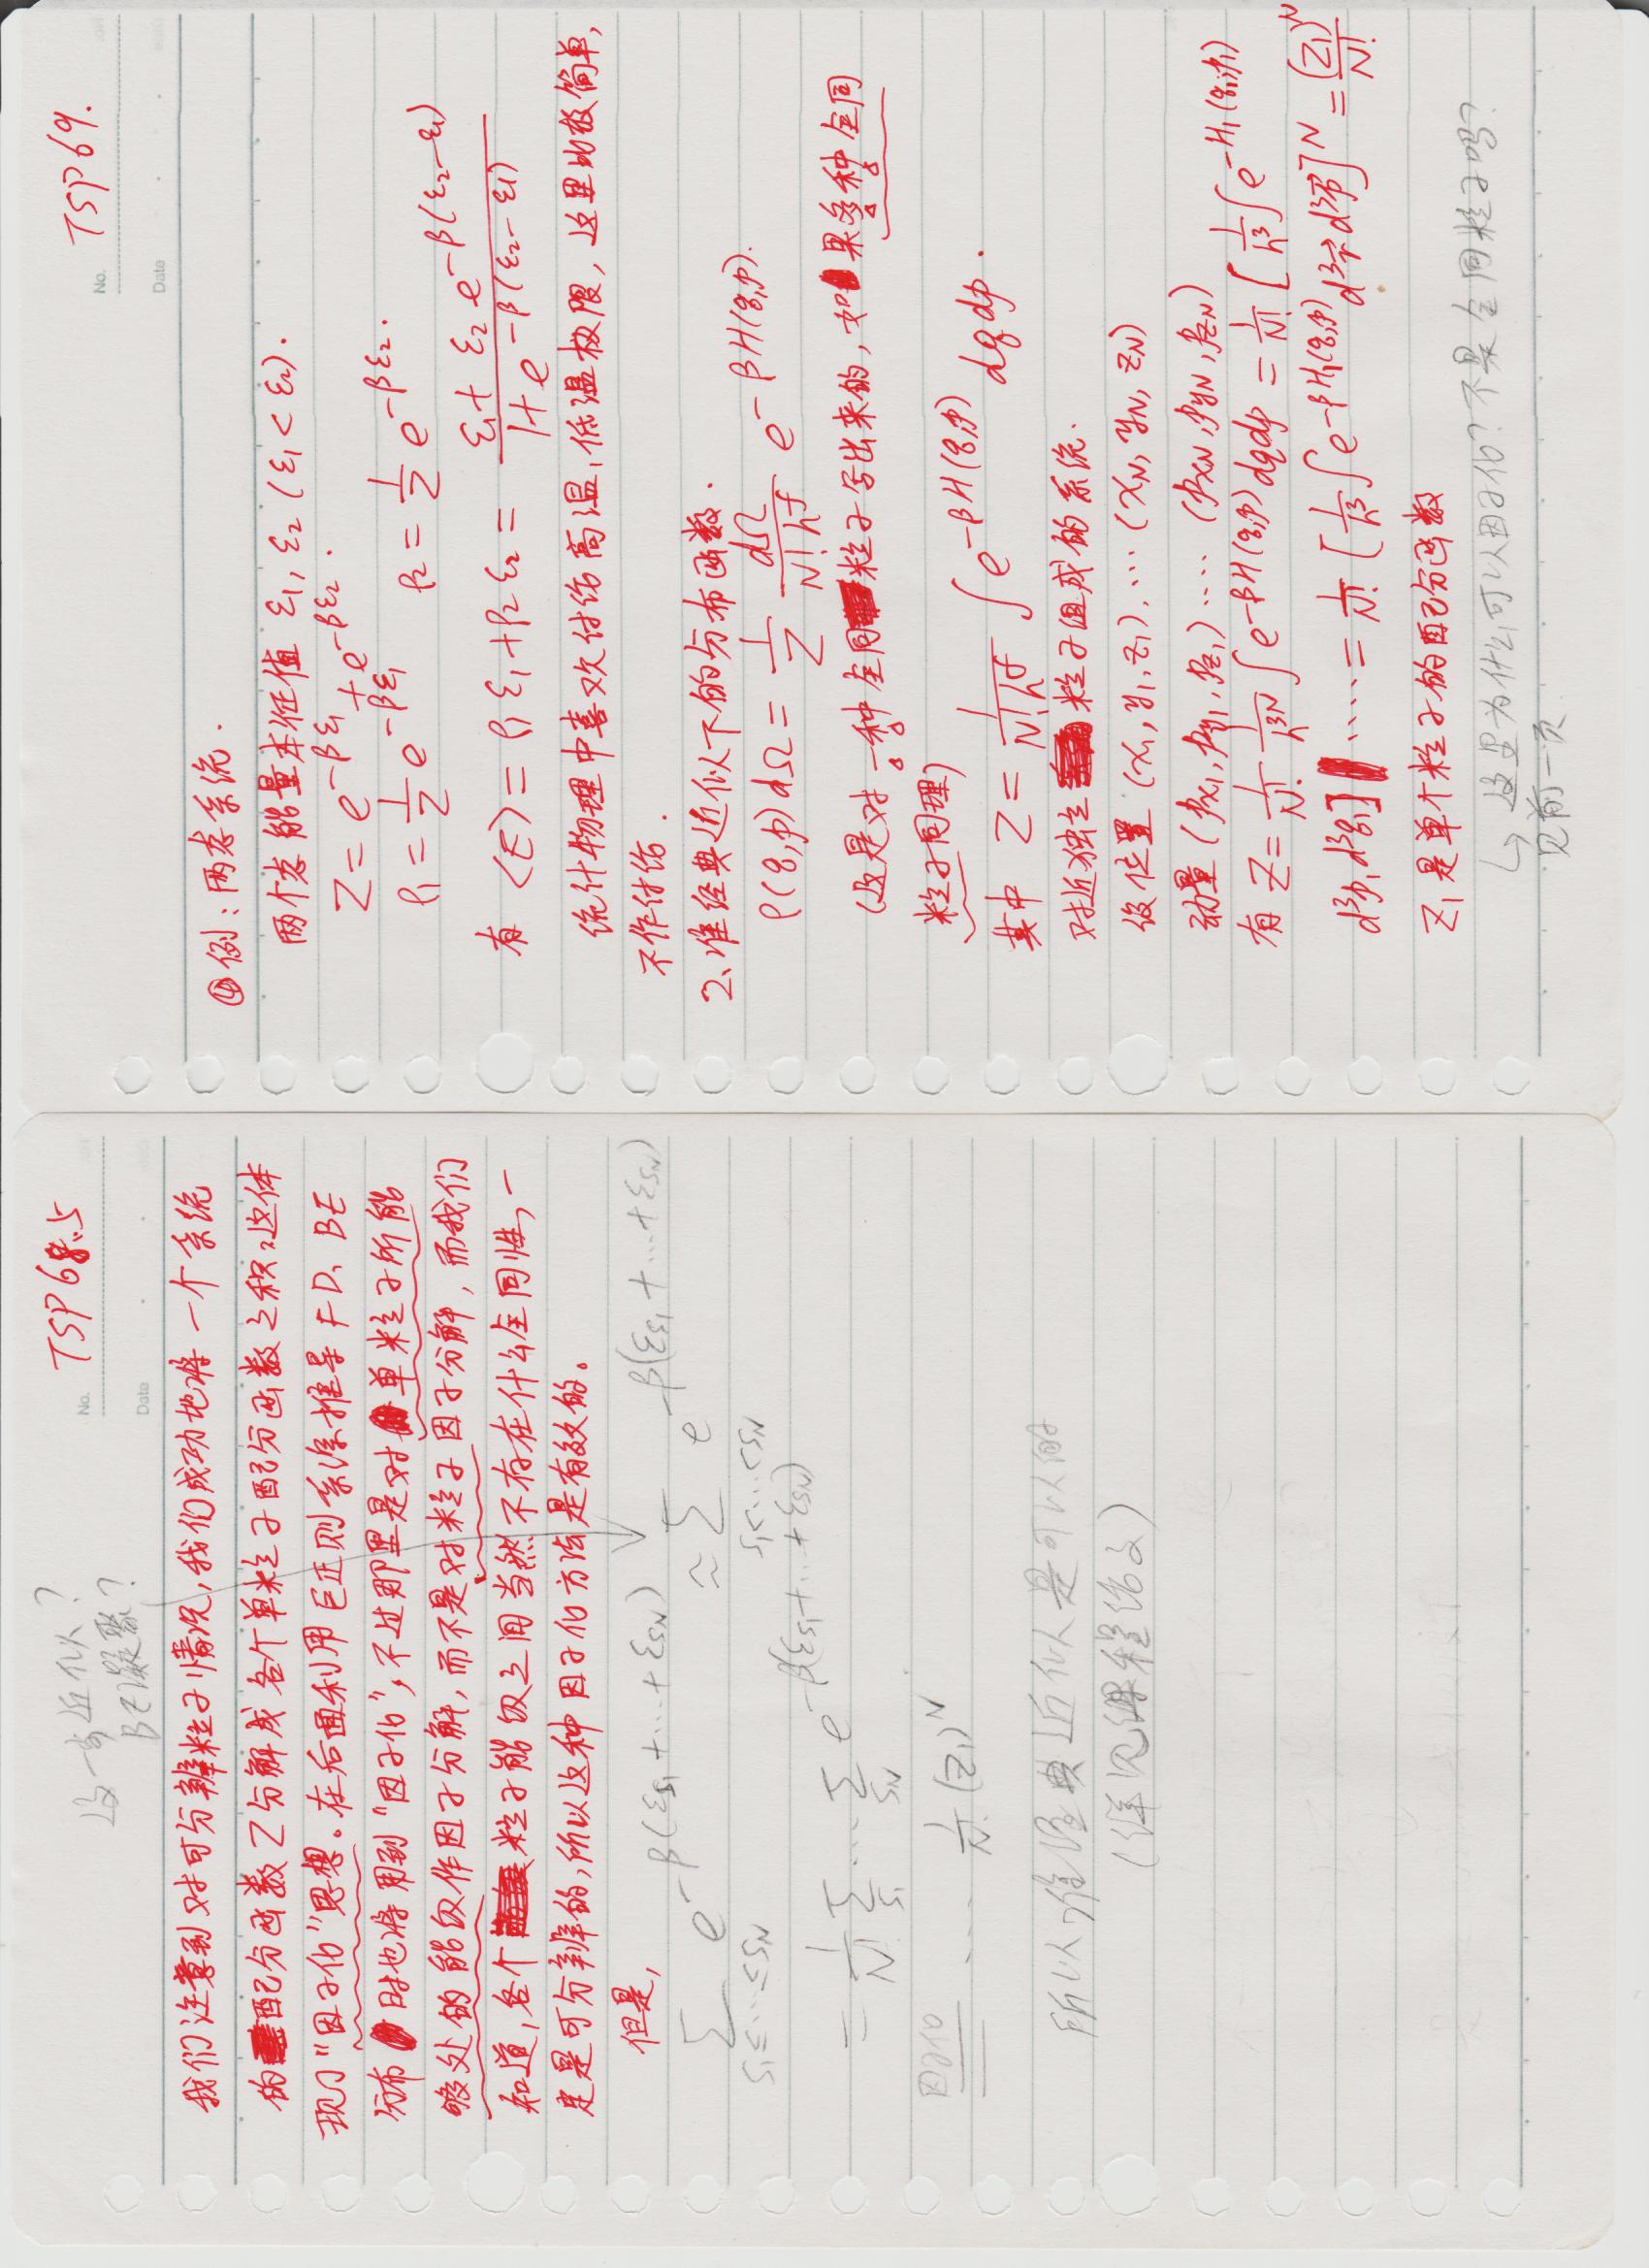 这一步近似?
BE凝聚?
No. TSP68.5
Date
我们注意到对可分辨粒子情况,我们成功地将一个系统
的配分函数Z分解成各个单粒子配分函数之积。这体
现了“因子化”思想。在后面利用巨正则系综推导FD、BE
分布时也将用到“因子化”,不过那里是对单粒子所能
够处的能级作因子分解,而不是对粒子因子分解,而我们
知道,各个粒子能级之间当然不存在什么全同性,一
定是可分辨的,所以这种因子化方法是有效的。
但是,
∑_{S₁≤…≤S_N} e^{-β(ε_{S₁}+…+ε_{S_N})} ≈ ∑_{S₁<…<S_N} e^{-β(ε_{S₁}+…+ε_{S_N})}
= 1/N! ∑_{S₁} … ∑_{S_N} e^{-β(ε_{S₁}+…+ε_{S_N})}
因子化 … 1/N! (Z₁)^N
所以准经典近似是可以的
(详见课程论文)
No. TSP69.
Date
④例:两态系统.
两个态能量本征值 ε₁, ε₂ (ε₁<ε₂).
Z = e^{-βε₁} + e^{-βε₂}.
ρ₁ = 1/Z e^{-βε₁} ρ₂ = 1/Z e^{-βε₂}.
有 〈E〉= ρ₁ε₁+ρ₂ε₂ = (ε₁+ε₂e^{-β(ε₂-ε₁)})/(1+e^{-β(ε₂-ε₁)})
统计物理中喜欢讨论高温,低温极限,这里比较简单,
不作讨论.
2、准经典近似下的分布函数.
ρ(q,p)dΩ = 1/Z dΩ/(N!h^f) e^{-βH(q,p)}.
(这是对一种全同粒子写出来的,如果多种全同
粒子同理)
其中 Z = 1/(N!h^f) ∫e^{-βH(q,p)} dqdp.
对近独立粒子组成的系统.
设位置 (x₁,y₁,z₁), … (x_N,y_N,z_N)
动量 (p_{x1},p_{y1},p_{z1}) …. (p_{xN},p_{yN},p_{zN})
有 Z = 1/N! 1/h^{3N} ∫e^{-βH(q,p)}dqdp = 1/N! [1/h³ ∫e^{-H₁(q₁,p₁)}
d³p₁d³q₁] …. = 1/N! [1/h³ ∫e^{-βH₁(q,p)} d³r⃗ d³p⃗]^N = (Z₁)^N/N!
Z₁是单个粒子的配分函数
↳ 这里为什么可以因子化?不是全同粒子吗?
见前一页